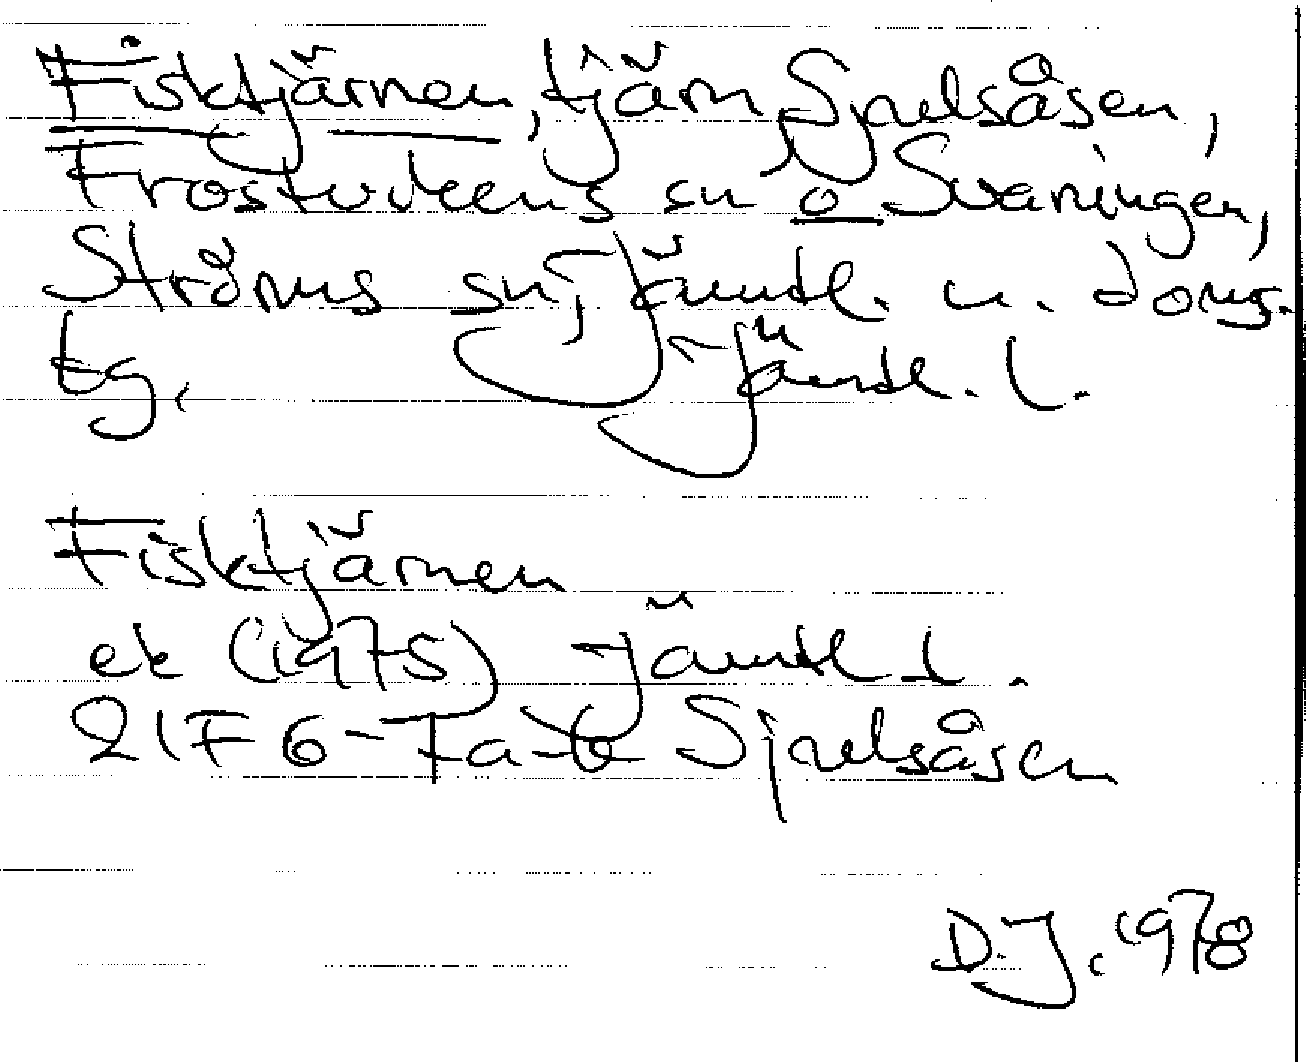 Fisktjärnen, tjärn Sjulsåsen,
Frostvikens sn o Svaningen,
Ströms sn, Jämtl. n. doms.
tg. Jämtl. l.
Fisktjärnen
ek (1975) Jämtl l.
21F 6-7a-b Sjulsåsen
D.J. 1978